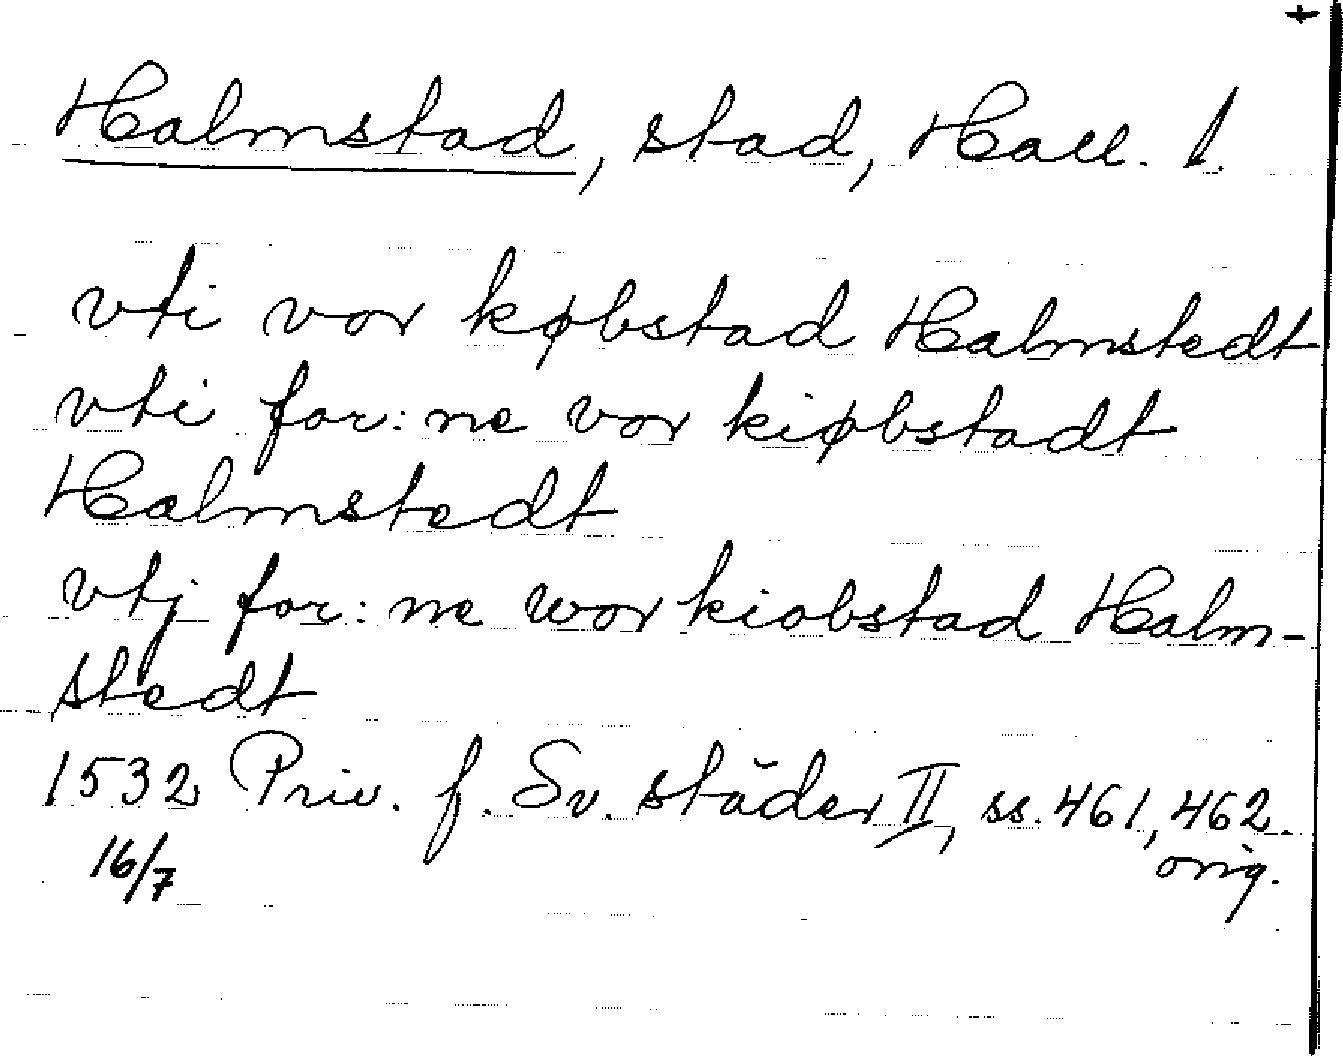 Halmstad, stad, Hall. l.
vti vor købstad Halmstedt
vti for:ne vor kiøbstadt
Halmstedt
vtj for:ne wor kiobstad Halm-
stedt
1532 Priv. f. Sv. städer II, ss. 461, 462.
16/7 orig.